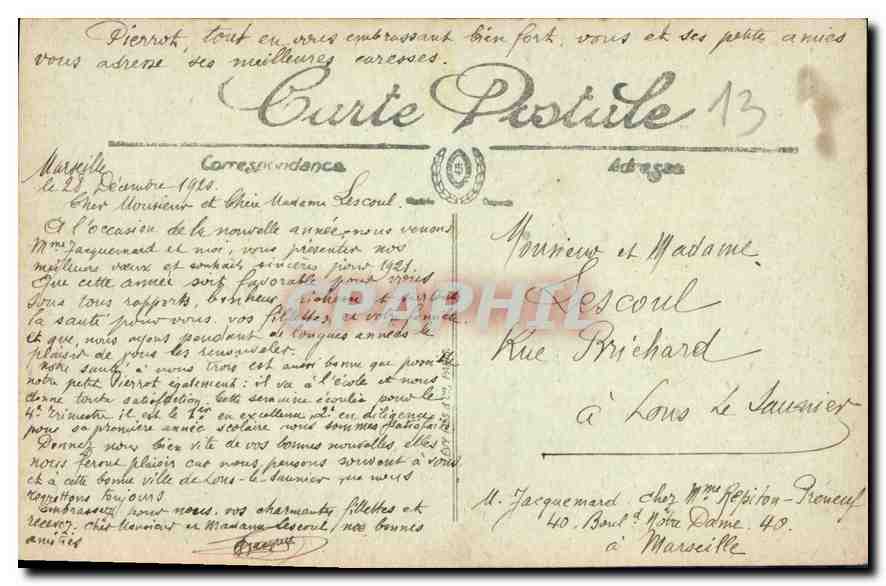 Pierrot, tout en vous embrassant bien fort, vous et ses petites amies
vous adresse ses meilleures caresses.
Carte Postale
13
Correspondance
Adresse
Marseille
le 28 Décembre 1920.
Cher Monsieur et Chère Madame Lescoul.
A l'occasion de la nouvelle année, nous venons
Mme Jacquemard et moi, vous présenter nos
meilleurs vœux et souhaits sincères pour 1921.
Que cette année soit favorable pour vous
sous tous rapports, bonheur, richesse et surtout
la santé pour vous, vos fillettes, et votre famille
et que, nous ayons pendant de longues années le
plaisir de vous les renouveler.
Notre santé à nous trois est aussi bonne que possible
notre petit Pierrot également : il va à l'école et nous
donne toute satisfaction. Cette semaine écoulée pour le
4e trimestre il est le 1er en excellence, 2e en diligence
pour sa première année scolaire nous sommes satisfaits.
Donnez nous bien vite de vos bonnes nouvelles, elles
nous feront plaisir car nous pensons souvent à vous
et à cette bonne ville de Lons-le-Saunier que nous
regrettons toujours.
Embrassez pour nous, vos charmantes fillettes et
recevez, cher Monsieur et Madame Lescoul, nos bonnes
amitiés
Monsieur et Madame
Lescoul
Rue Brichard
à Lons Le Saunier
M. Jacquemard, chez Mme Repiton-Préneuf
40. Bould Notre Dame. 40.
à Marseille
CARAPHIL